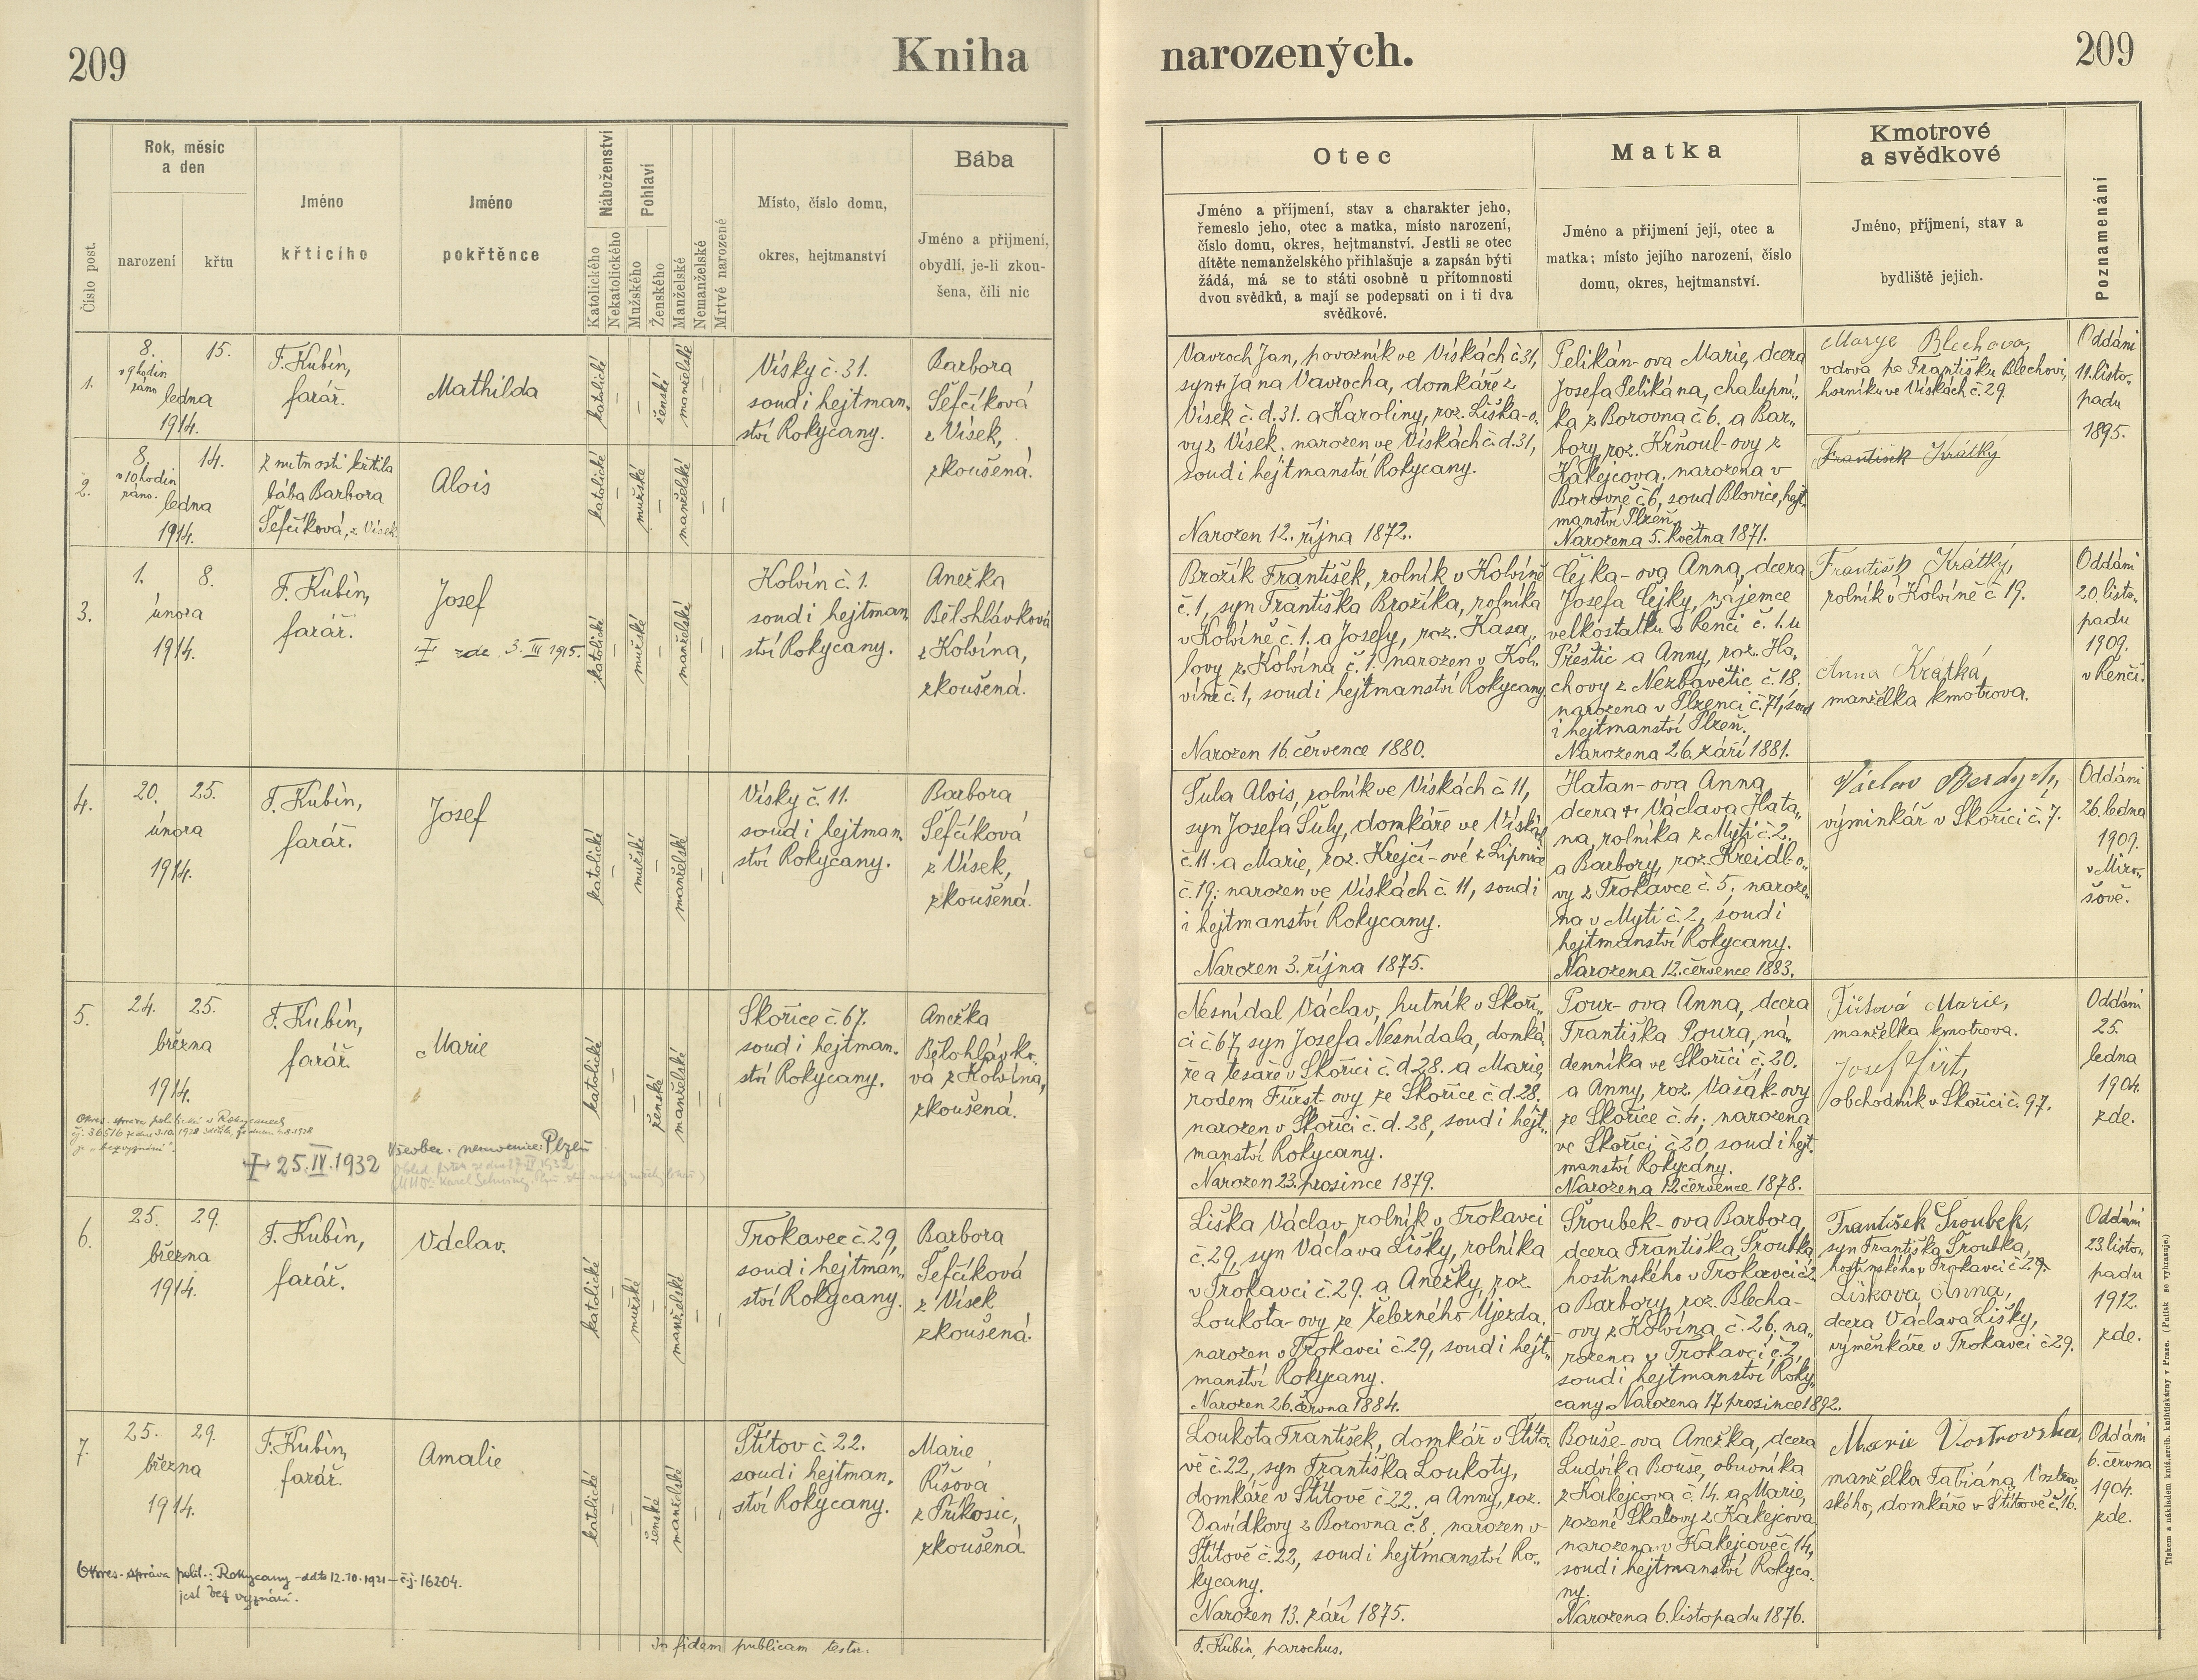 209
Kniha
narozených.
209
Číslo post.
Rok, měsíc
a den
narození
křtu
Jméno
křticího
Jméno
pokřtěnce
Náboženství
Katolického
Nekatolického
Pohlaví
Mužského
Ženského
Manželské
Nemanželské
Mrtvé narozené
Místo, číslo domu,
okres, hejtmanství
Bába
Jméno a přijmení,
obydlí, je-li zkou-
šena, čili nic
Otec
Jméno a příjmení, stav a charakter jeho,
řemeslo jeho, otec a matka, místo narození,
číslo domu, okres, hejtmanství. Jestli se otec
dítěte nemanželského přihlašuje a zapsán býti
žádá, má se to státi osobně u přítomnosti
dvou svědků, a mají se podepsati on i ti dva
svědkové.
Matka
Jméno a přijmení její, otec a
matka; místo jejího narození, číslo
domu, okres, hejtmanství.
Kmotrové
a svědkové
Jméno, příjmení, stav a
bydliště jejich.
Poznamenání
1.
8.
v 9 hodin
ráno
15.
ledna
1914.
F. Kubín,
farář.
Mathilda
katolické
—
—
ženské
manželské
—
—
Vísky č. 31.
soud i hejtman„
ství Rokycany.
Barbora
Šefčíková
z Vísek,
zkoušená.
2.
8.
v 10 hodin
ráno.
14.
ledna
1914.
Z nutnosti křtila
bába Barbora
Šefčíková, z Vísek.
Alois
katolické
—
mužské
—
manželské
—
—
Vavroch Jan, povozník ve Vískách č. 31,
syn + Jana Vavrocha, domkáře z
Vísek č. d. 31. a Karoliny, roz. Liška-o„
vy z Vísek; narozen ve Vískách č. d. 31,
soud i hejtmanství Rokycany.
Narozen 12. října 1872.
Pelikán-ova Marie, dcera
Josefa Pelikána, chalupní„
ka z Borovna č. 6. a Bar„
bory, roz. Krňoul-ovy z
Kakejcova; narozena v
Borovně č. 6, soud Blovice, hejt„
manství Plzeň.
Narozena 5. května 1871.
Marye Blechova,
vdova po Františku Blechovi,
horníku ve Vískách č. 29.
František Krátký
Oddáni
11. listo„
padu
1895.
3.
1.
8.
února
1914.
F. Kubín,
farář.
Josef
† zde 3. III 1915.
katolické
—
mužské
—
manželské
—
—
Kolvín č. 1.
soud i hejtman„
ství Rokycany.
Anežka
Bělohlávková
z Kolvína,
zkoušená.
Brožík František, rolník v Kolvíně
č. 1, syn Františka Brožíka, rolníka
v Kolvíně č. 1. a Josefy, roz. Kasa„
lovy z Kolvína č. 1. narozen v Kol„
víně č. 1, soud i hejtmanství Rokycany.
Narozen 16. července 1880.
Čejka-ova Anna, dcera
Josefa Čejky, nájemce
velkostatku v Řenči č. 1. u
Přeštic a Anny, roz. Ha„
chovy z Nezbavětic č. 18.
narozena v Plzenci č. 71, soud
i hejtmanství Plzeň.
Narozena 26. září 1881.
František Krátký,
rolník v Kolvíně č. 19.
Anna Krátká,
manželka kmotrova.
Oddáni
20. listo„
padu
1909.
v Řenči.
4.
20.
25.
února
1914.
F. Kubín,
farář.
Josef
katolické
—
mužské
—
manželské
—
—
Vísky č. 11.
soud i hejtman„
ství Rokycany.
Barbora
Šefčíková
z Vísek,
zkoušená.
Šula Alois, rolník ve Vískách č. 11,
syn Josefa Šuly, domkáře ve Vískách
č. 11. a Marie, roz. Krejčí-ové z Lipnice
č. 19; narozen ve Vískách č. 11, soud i
i hejtmanství Rokycany.
Narozen 3. října 1875.
Hatan-ova Anna,
dcera + Václava Hata„
na, rolníka z Mýti č. 2.
a Barbory, roz. Kreidl-o„
vy z Trokavce č. 5. naroze„
na v Mýti č. 2, soud i
hejtmanství Rokycany.
Narozena 12. července 1883.
Václav Berdych,
výminkář v Skořici č. 7.
Oddáni
26. ledna
1909.
v Miro„
šově.
5.
24.
25.
března
1914.
F. Kubín,
farář.
Marie
katolické
—
—
ženské
manželské
—
—
Skořice č. 67.
soud i hejtman„
ství Rokycany.
Anežka
Bělohlávko„
vá z Kolvína,
zkoušená.
Okres. správa politická v Rokycanech
je „bez vyznání".
† 25. IV. 1932 Všeobec. nemocnice Plzeň
Nesnídal Václav, hutník v Skoři„
ci č. 67, syn Josefa Nesnídala, domká„
ře a tesaře v Skořici č. d. 28. a Marie,
rodem Fürst-ovy ze Skořice č. d. 28.
narozen v Skořici č. d. 28, soud i hejt„
manství Rokycany.
Narozen 23. prosince 1879.
Pour-ova Anna, dcera
Františka Poura, ná„
denníka ve Skořici č. 20.
a Anny, roz. Vašák-ovy
ze Skořice č. 4; narozena
ve Skořici č. 20, soud i hejt„
manství Rokycany.
Narozena 12. července 1878.
Fiřtová Marie,
manželka kmotrova.
Josef Fiřt,
obchodník v Skořici č. 97.
Oddáni
25.
ledna
1904.
zde.
6.
25.
29.
března
1914.
F. Kubín,
farář.
Václav.
katolické
—
mužské
—
manželské
—
—
Trokavec č. 29,
soud i hejtman„
ství Rokycany.
Barbora
Šefčíková
z Vísek
zkoušená.
Liška Václav, rolník v Trokavci
č. 29, syn Václava Lišky, rolníka
v Trokavci č. 29. a Anežky, roz.
Loukota-ovy ze Železného Újezda,
narozen v Trokavci č. 29, soud i hejt„
manství Rokycany.
Narozen 26. června 1884.
Šroubek-ova Barbora,
dcera Františka Šroubka,
hostinského v Trokavci č. 2
a Barbory, roz. Blecha-
ovy z Kolvína č. 26. na„
rozena v Trokavci č. 2,
soud i hejtmanství Roky„
cany. Narozena 17. prosince 1892.
František Šroubek,
syn Františka Šroubka,
hostinského v Trokavci č. 29.
Lišková Anna,
dcera Václava Lišky,
výměnkáře v Trokavci č. 29.
Oddáni
23. listo„
padu
1912.
zde.
7.
25.
29.
března
1914.
F. Kubín,
farář.
Amalie
katolické
—
—
ženské
manželské
—
—
Štítov č. 22.
soud i hejtman„
ství Rokycany.
Marie
Říšová
z Příkosic,
zkoušená.
Okres. správa polit.: Rokycany - ddto 12.10.1921 - č.j. 16204.
jest bez vyznání.
Loukota František, domkář v Štíto„
vě č. 22, syn Františka Loukoty,
domkáře v Štítově č. 22. a Anny, roz.
Davídkovy z Borovna č. 8. narozen v
Štítově č. 22, soud i hejtmanství Ro„
kycany.
Narozen 13. září 1875.
Bouše-ova Anežka, dcera
Ludvíka Bouše, obuvníka
z Kakejcova č. 14. a Marie,
rozené Skalovy z Kakejcova.
narozena v Kakejcově č. 14,
soud i hejtmanství Rokyca„
ny.
Narozena 6. listopadu 1876.
Marie Vostrovska,
manželka Fabiána Vostrov„
ského, domkáře v Štítově č. 16.
Oddáni
6. června
1904.
zde.
In fidem publicam testor:
F. Kubín, parochus.
Tiskem a nákladem kníž. arcib. knihtiskárny v Praze. (Patisk se vyhrazuje.)